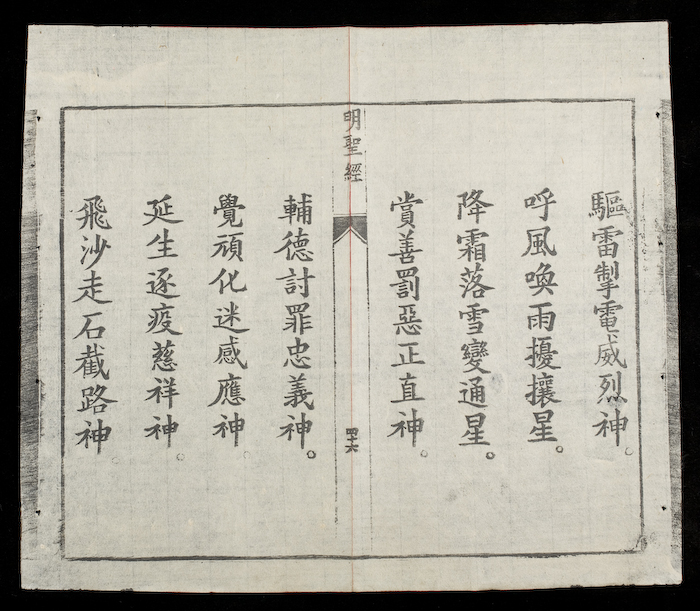 驅雷掣電威烈神。
呼風喚雨擾攘星。
降霜落雪變通星。
賞善罰惡正直神。
明聖經
四十六
輔德討罪忠義神。
覺頑化迷感應神。
延生逐疫慈祥神。
飛沙走石截路神。